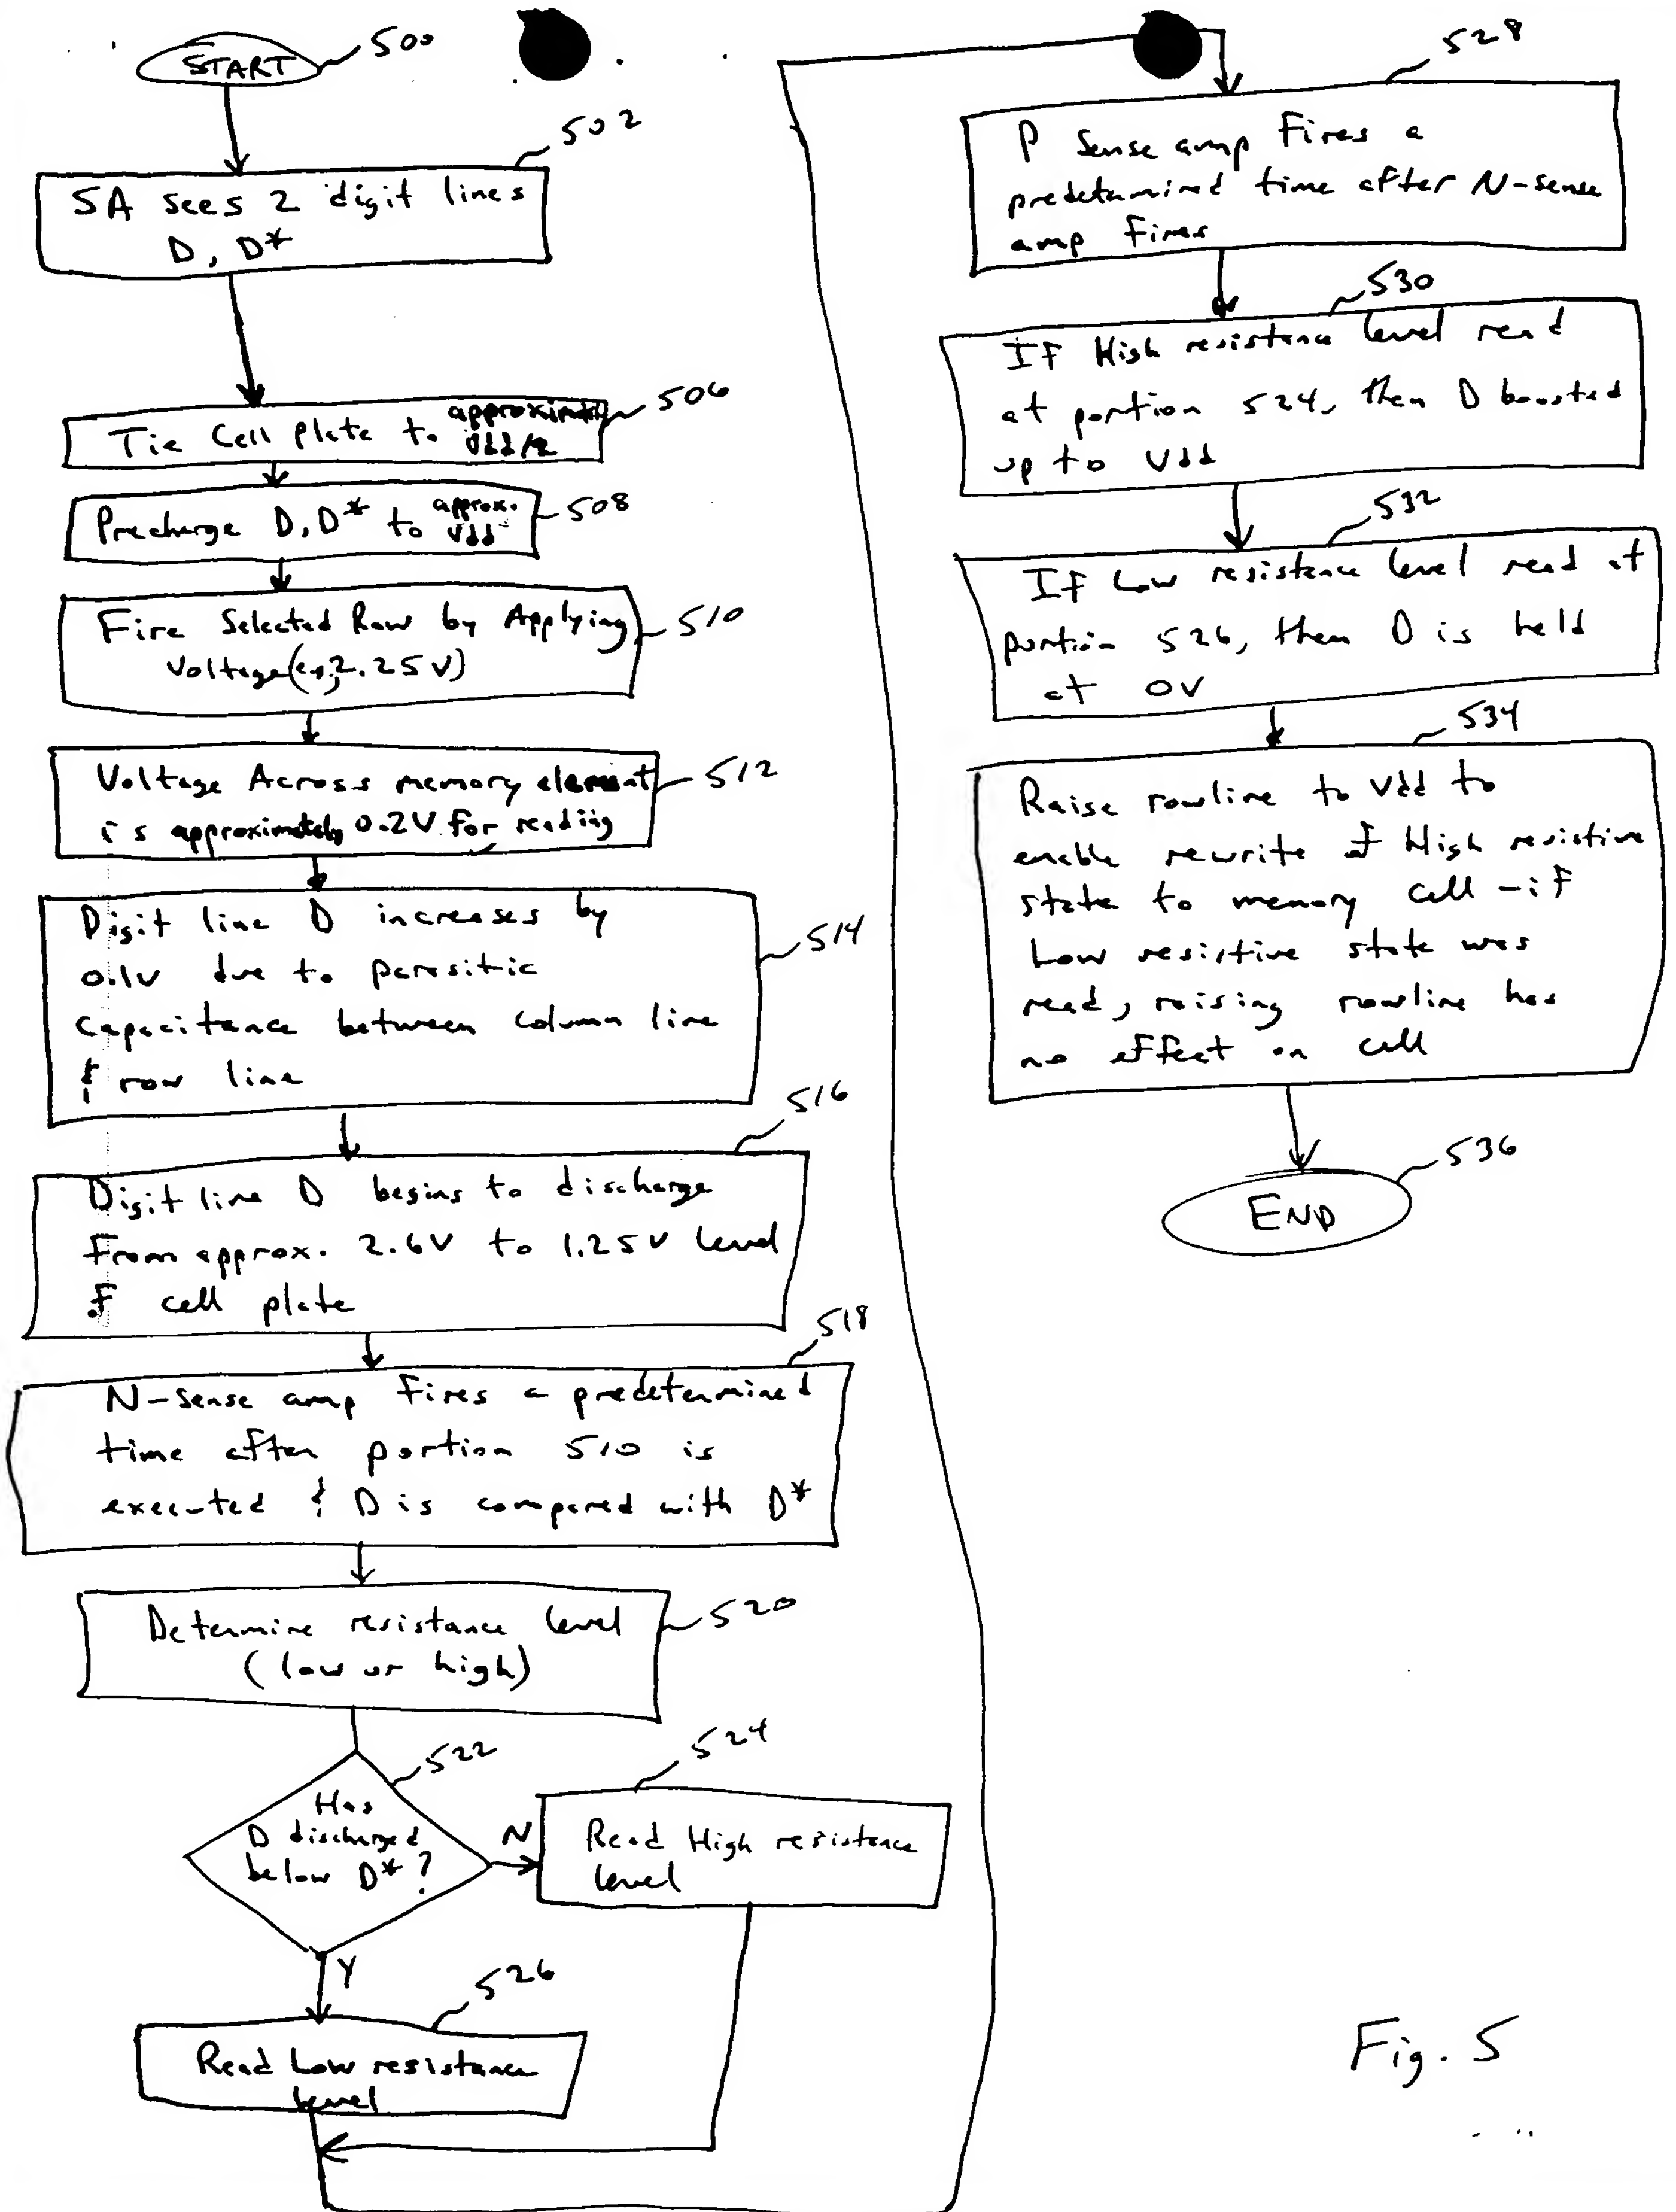 START
500
502
SA sees 2 digit lines
D, D*
506
Tie Cell plate to approximately
Vdd/2
508
Precharge D, D* to approx.
Vdd
510
Fire Selected Row by Applying
Voltage (e.g., 2.25V)
512
Voltage Across memory element
is approximately 0.2V for reading
514
Digit line D increases by
0.1V due to parasitic
capacitance between column line
& row line
516
Digit line D begins to discharge
From approx. 2.6V to 1.25V level
of cell plate
518
N-sense amp Fires a predetermined
time after portion 510 is
executed & D is compared with D*
520
Determine resistance level
(low or high)
522
Has
D discharged
below D*?
N
524
Read High resistance
level
Y
526
Read Low resistance
level
528
P Sense amp Fires a
predetermined time after N-sense
amp Fires
530
IF High resistance level read
at portion 524, then D boosted
up to Vdd
532
If Low resistance level read at
portion 526, then D is held
at 0V
534
Raise rowline to Vdd to
enable rewrite of High resistive
state to memory cell - if
Low resistive state was
read, raising rowline has
no effect on cell
536
END
Fig. 5